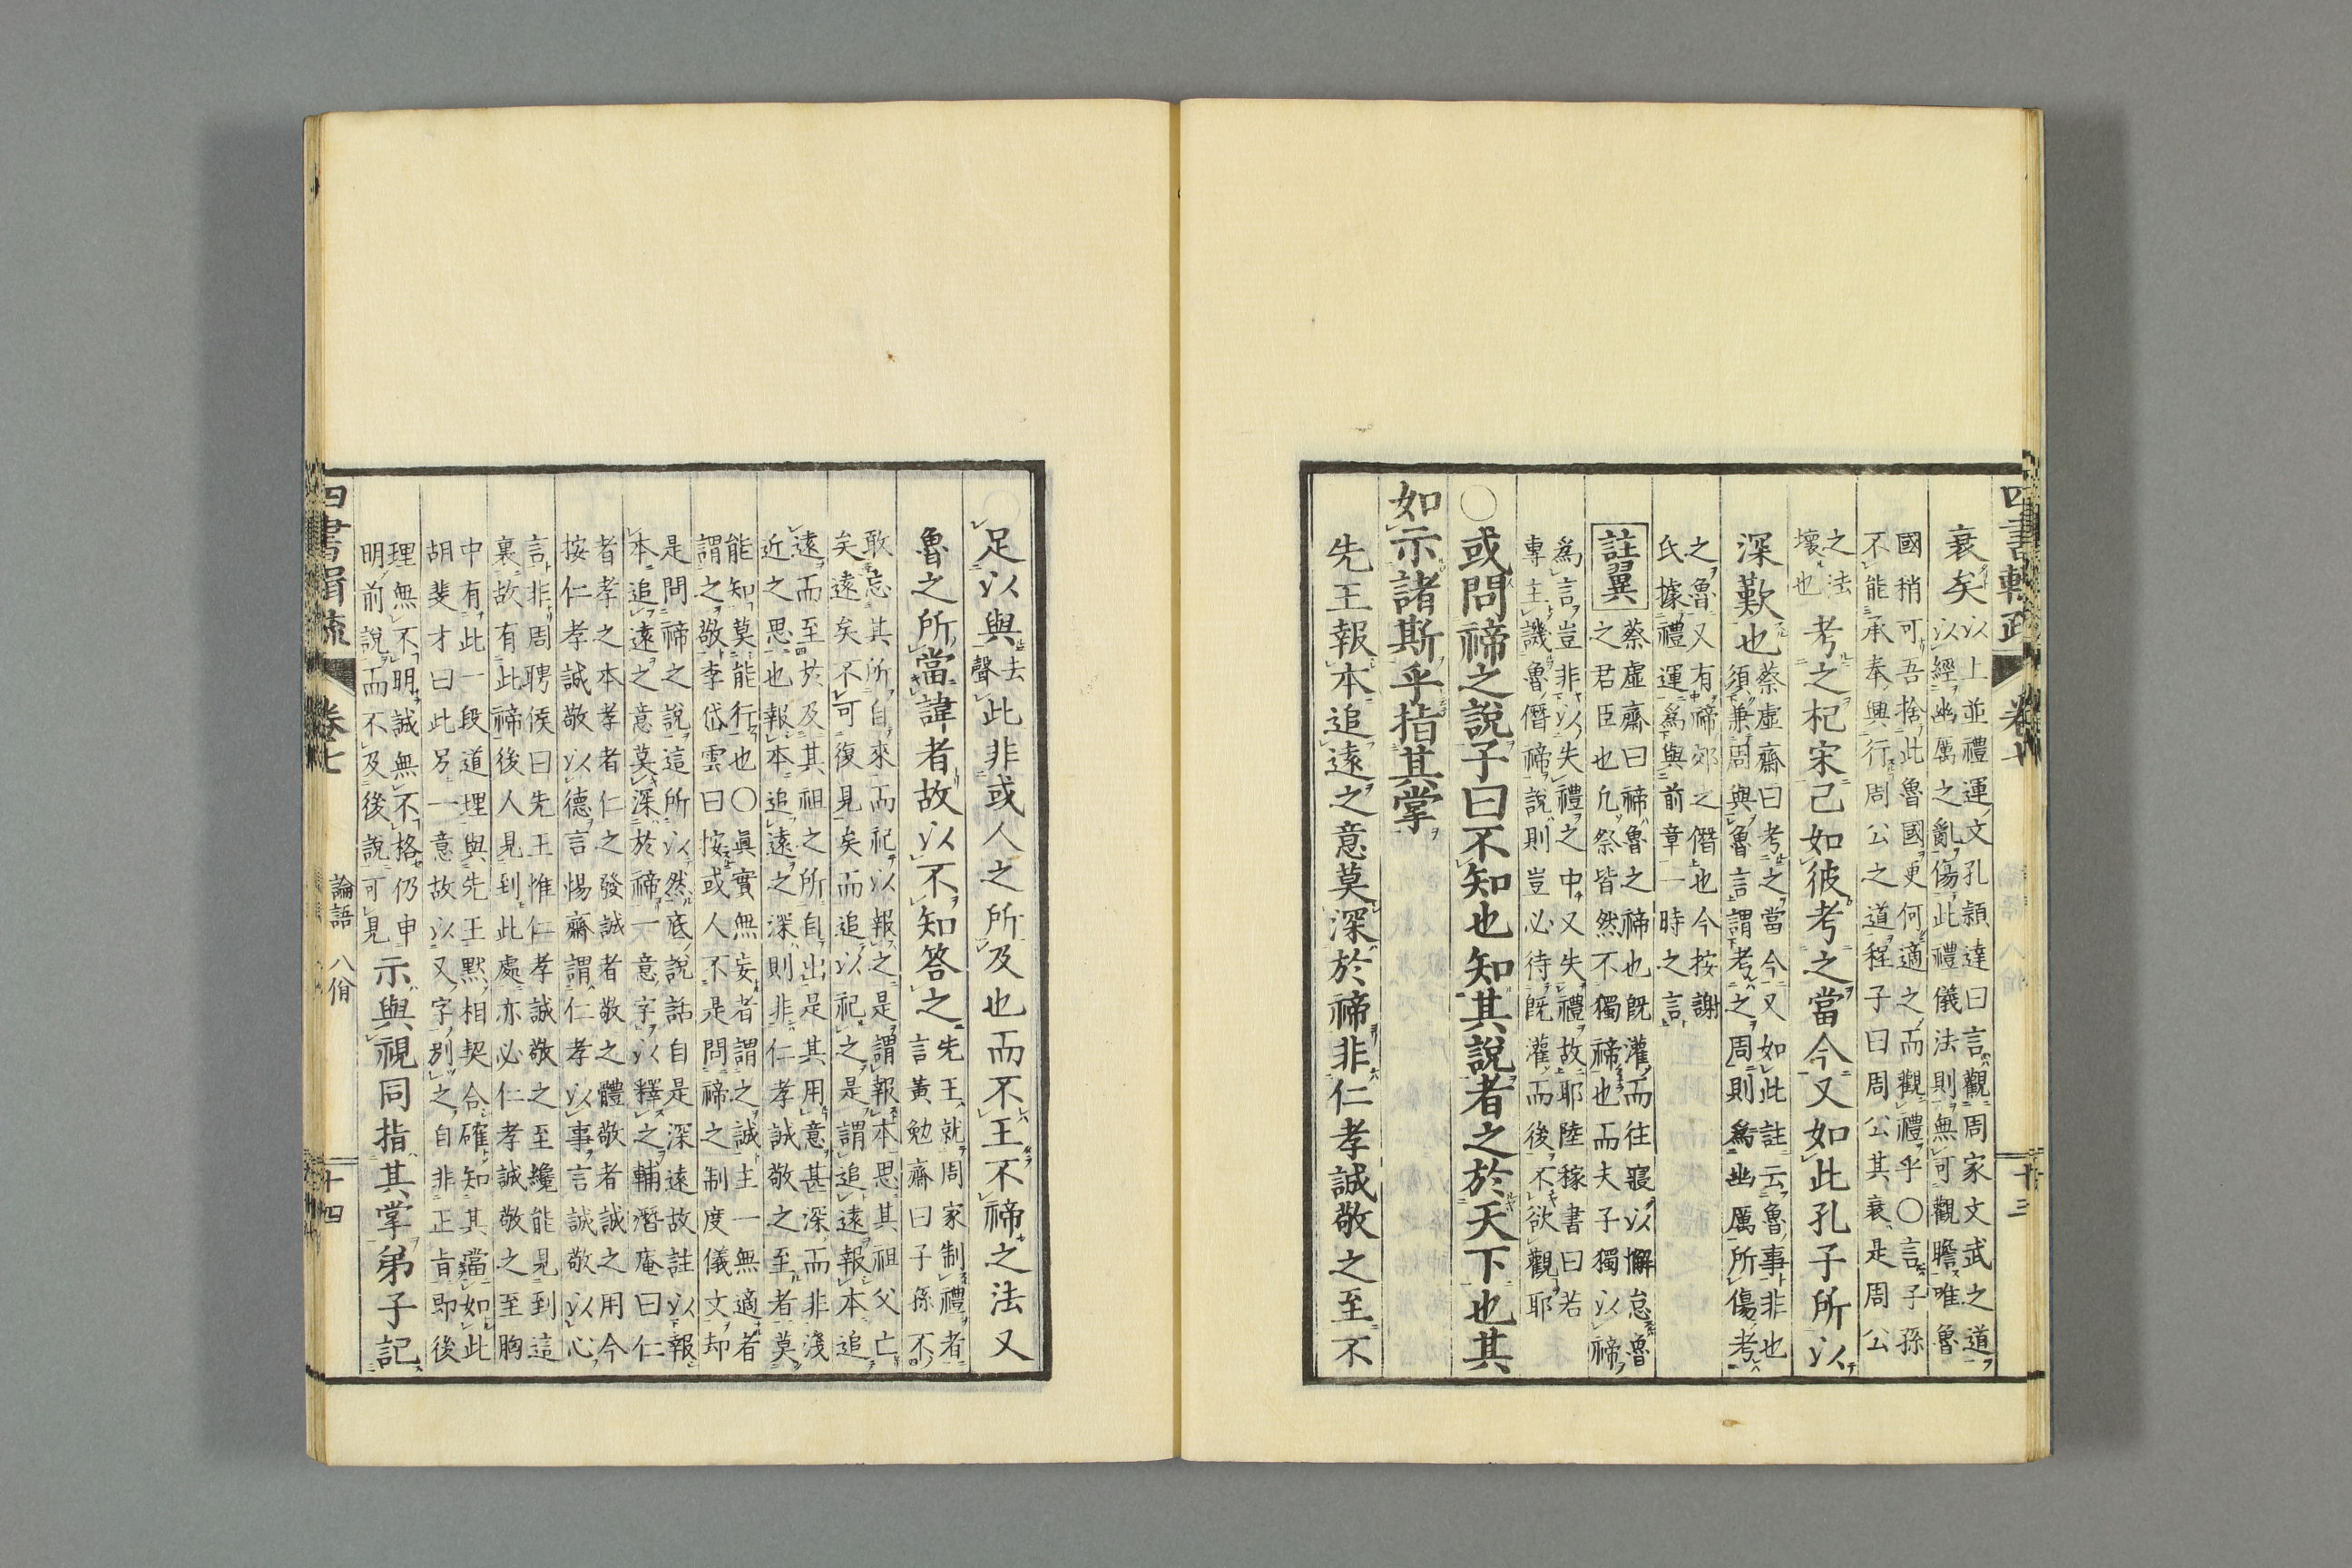 衰矣以上並禮運文孔頴達曰言觀周家文武之道
以經幽厲之亂傷此禮儀法則無可觀瞻唯魯
國稍可吾捨此魯國更何適之而觀禮乎○言子孫
不能承奉興行周公之道程子曰周公其衰是周公
之法
壞也
考之杞宋已如彼考之當今又如此孔子所以
深歎也蔡虛齋曰考之當今又如此註云魯事非也
須兼周與魯言謂考之周則爲幽厲所傷考
之魯又有禘郊之僭也今按謝
氏據禮運爲與前章一時之言
註翼
蔡虛齋曰禘魯之禘也既灌而往寢以懈怠魯
之君臣也凢祭皆然不獨禘也而夫子獨以禘
爲言豈非以失禮之中又失禮故耶陸稼書曰若
專主譏魯僭禘說則豈必待既灌而後不欲觀耶
○或問禘之說子曰不知也知其說者之於天下也其
如示諸斯乎指其掌
先王報本追遠之意莫深於禘非仁孝誠敬之至不
四書輯疏 卷七
十三
足以與去
聲此非或人之所及也而不王不禘之法又
魯之所當諱者故以不知答之先王就周家制禮者
言黃勉齋曰子孫不
敢忘其所自來而祀以報之是謂報本思其祖父亡
矣遠矣不可復見矣而追以祀之是謂追遠報本追
遠而至於及其祖之所自出是其用意甚深而非淺
近之思也報本追遠之深則非仁孝誠敬之至者莫
能知莫能行也○眞實無妄者謂之誠主一無適者
謂之敬李岱雲曰按或人不是問禘之制度儀文却
是問禘之說這所以然底說話自是深遠故註以報
本追遠之意莫深於禘一意字以釋之輔潛庵曰仁
者孝之本孝者仁之發誠者敬之體敬者誠之用今
按仁孝誠敬以德言惕齋謂仁孝以事言誠敬以心
言非周聘侯曰先王惟仁孝誠敬之至纔能見到這
裏故有此禘後人見到此處亦必仁孝誠敬之至胸
中有此一段道理與先王默相契合確知其當如此
胡斐才曰此另一意故以又字別之自非正旨即後
理無不明誠無不格仍申
明前說而不及後說可見
示與視同指其掌弟子記
四書輯疏 卷七
論語 八佾
十四